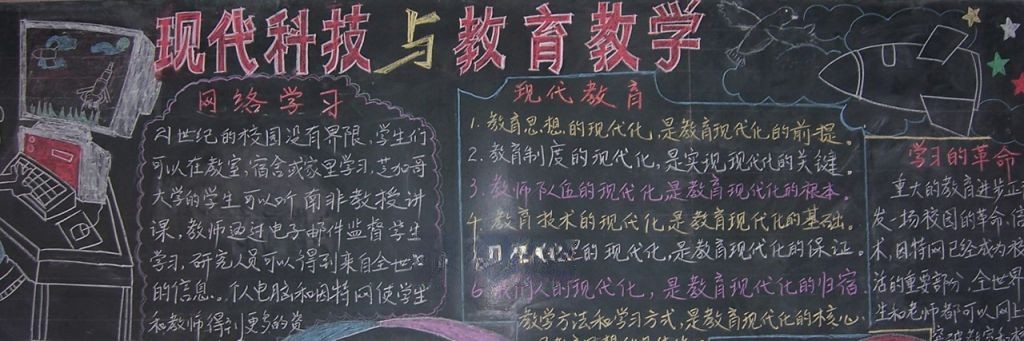 现代科技与教育教学
网络学习
21世纪的校园没有界限,学生们
可以在教室,宿舍或家里学习,芝加哥
大学的学生可以听南非教授讲
课,教师通过电子邮件监督学生
学习,研究人员可以得到来自全世
的信息。个人电脑和因特网使学生
和教师得到更多的资
现代教育
1.教育思想的现代化,是教育现代化的前提。
2.教育制度的现代化,是实现现代化的关键。
3.教师队伍的现代化是教育现代化的根本。
4.教育技术的现代化是教育现代化的基础。
的现代化,是教育现代化的保证。
6.我们人的现代化,是教育现代化的归宿
教学方法和学习方式,是教育现代化的核心
学习的革命
重大的教育进步正
发扬校园的革命,信
术,因特网已经成为校
活的重要部分,全世界
生和老师都可以网上